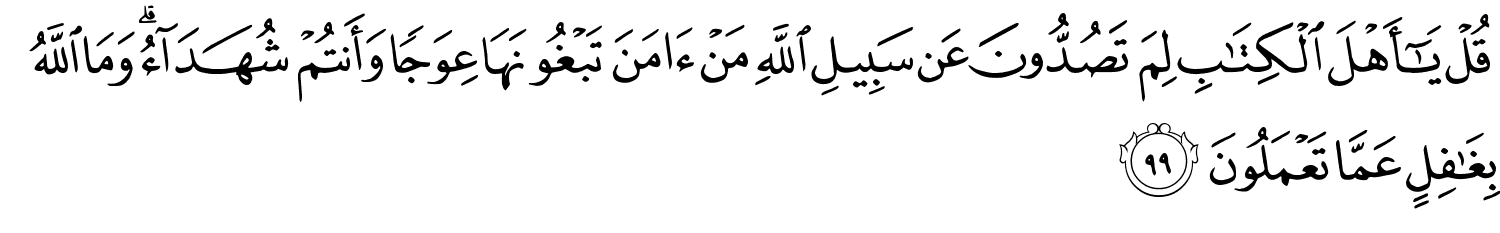 قُلْ يَـٰٓأَهْلَ ٱلْكِتَـٰبِ لِمَ تَصُدُّونَ عَن سَبِيلِ ٱللَّهِ مَنْ ءَامَنَ تَبْغُونَهَا عِوَجًا وَأَنتُمْ شُهَدَآءُ ۗ وَمَا ٱللَّهُ
بِغَـٰفِلٍ عَمَّا تَعْمَلُونَ ٩٩